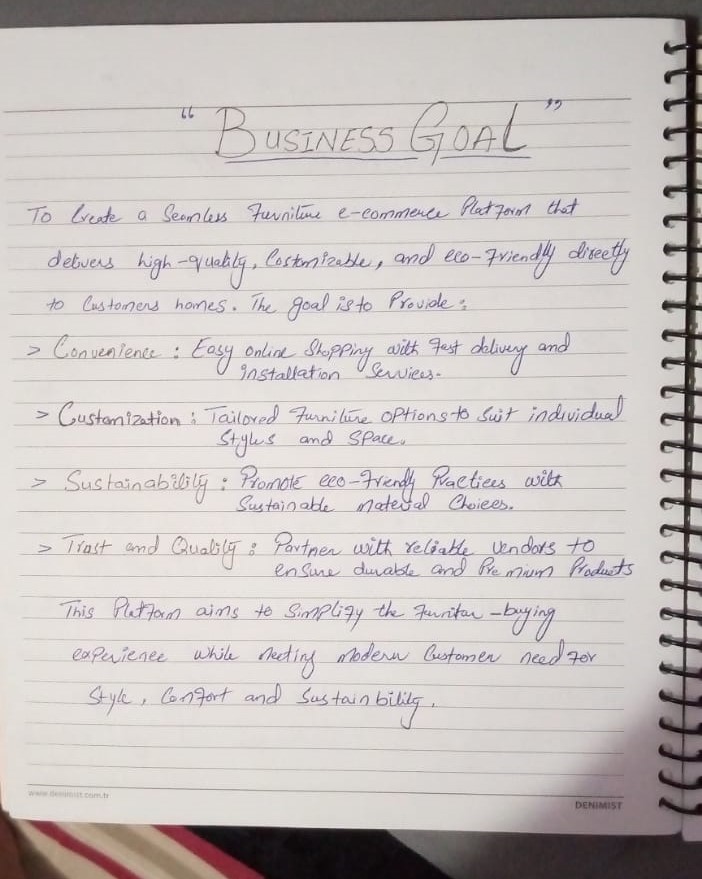 " BUSINESS GOAL "
To Create a Seamless Furniture e-commerce Platform that
delivers high-quality, Costomizable, and eco-friendly directly
to Customers homes. The goal is to Provide:
> Convenience : Easy online Shopping with fast delivery and
installation Services.
> Customization : Tailored Furniture options to Suit individual
Styles and Space.
> Sustainability : Promote eco-friendly Practices with
Sustainable material Choices.
> Trust and Quality : Partner with reliable vendors to
ensure durable and Premium Products
This Platform aims to Simplify the furnitur-buying
experience while meeting modern Customer need for
Style, Comfort and Sustainbility.
www.denimist.com.tr
DENIMIST